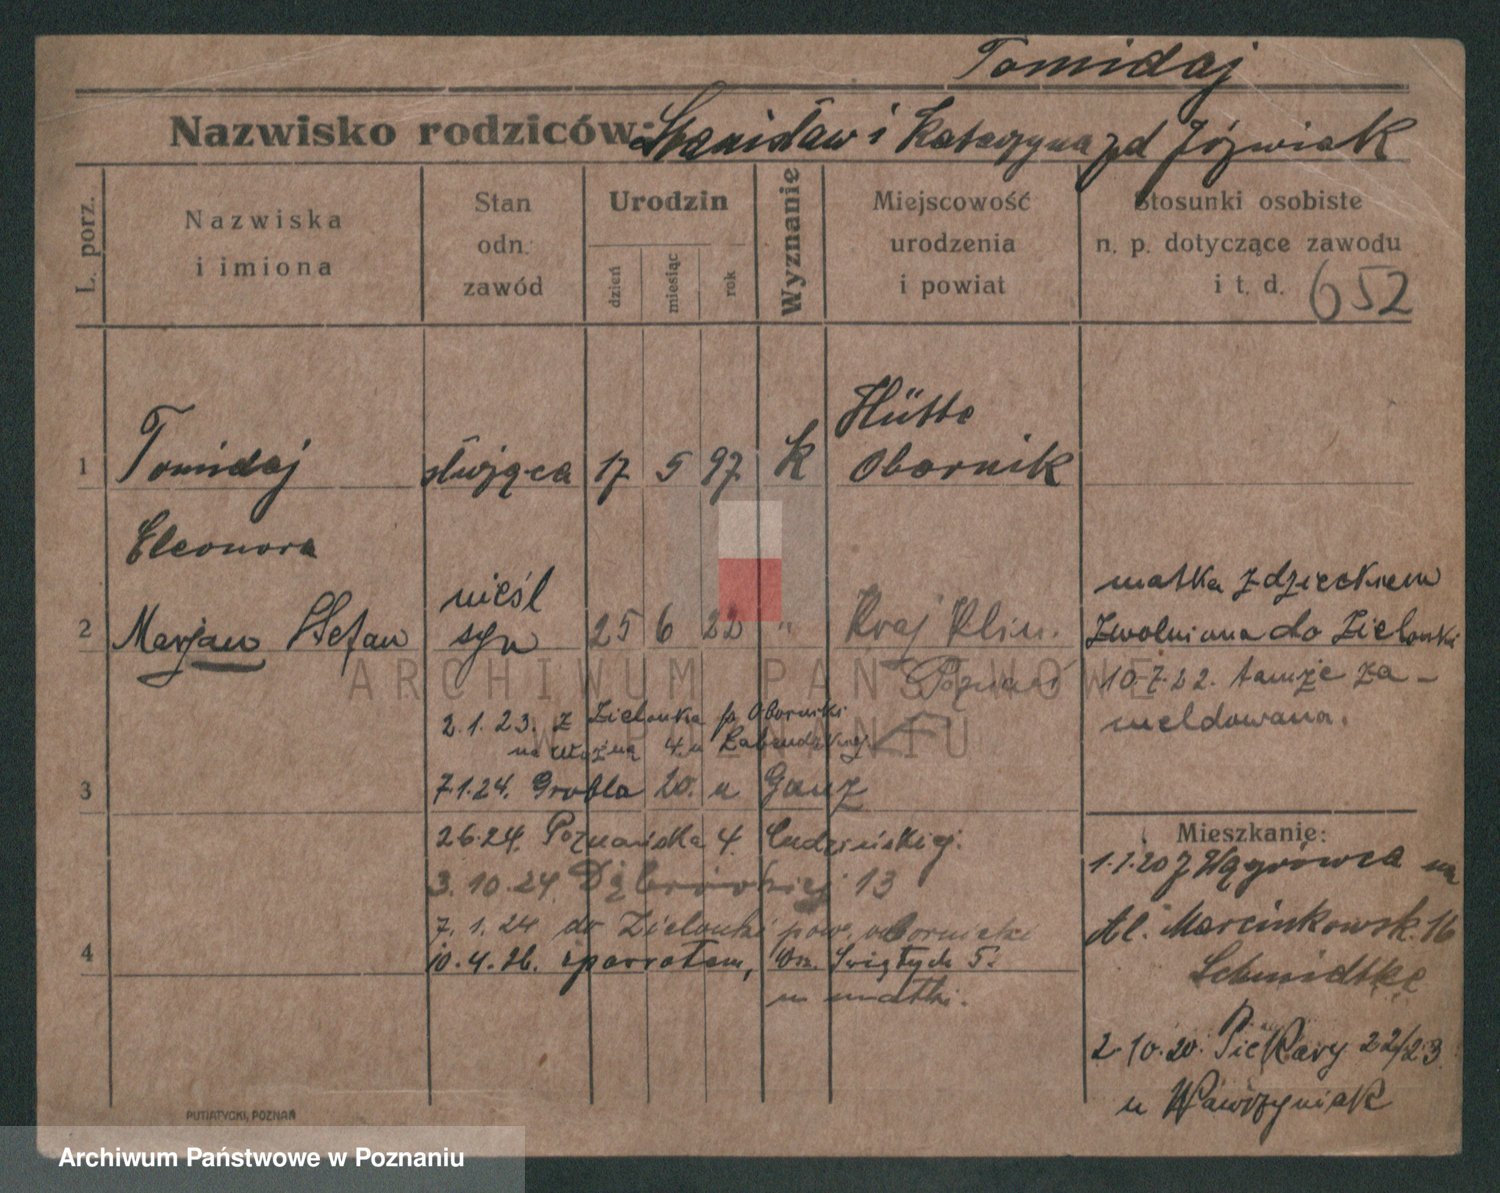 Tomidaj
Nazwisko rodziców: Stanisław i Katarzyna zd Józwiak
L. porz.
Nazwiska
i imiona
Stan
odn.
zawód
Urodzin
dzień
miesiąc
rok
Wyznanie
Miejscowość
urodzenia
i powiat
Stosunki osobiste
n. p. dotyczące zawodu
i t. d. 652
1 Tomidaj służąca 17 5 97 K Hütte
Obornik
Eleonora
2 Marjan Stefan nieśl
syn 25 6 22 " Kraj Klin.
Poznań
matka z dzieckiem
zwolniona do Zielonki
10-7-22. tamże za-
meldowana.
2.1.23. z Zielonka p. Oborniki
na 4. u
3 7.1.24. Grobla 20. u Ganz
2.6.24. Poznańska 4.
3.10.24. Dąbrowskiej 13
7.1.24 do Zielonki pow. obornicki
4 10.4.26. zpowrotem, Wsz. Świętych 5.
u matki.
Mieszkanie:
1.7.20 z Wągrówca na
Al. Marcinkowsk. 16
Schmidtke
2.10.20. Piekary 22/23
u Wawrzyniak
PUTIATYCKI, POZNAŃ
ARCHIWUM PAŃSTWOWE
W POZNANIU
Archiwum Państwowe w Poznaniu